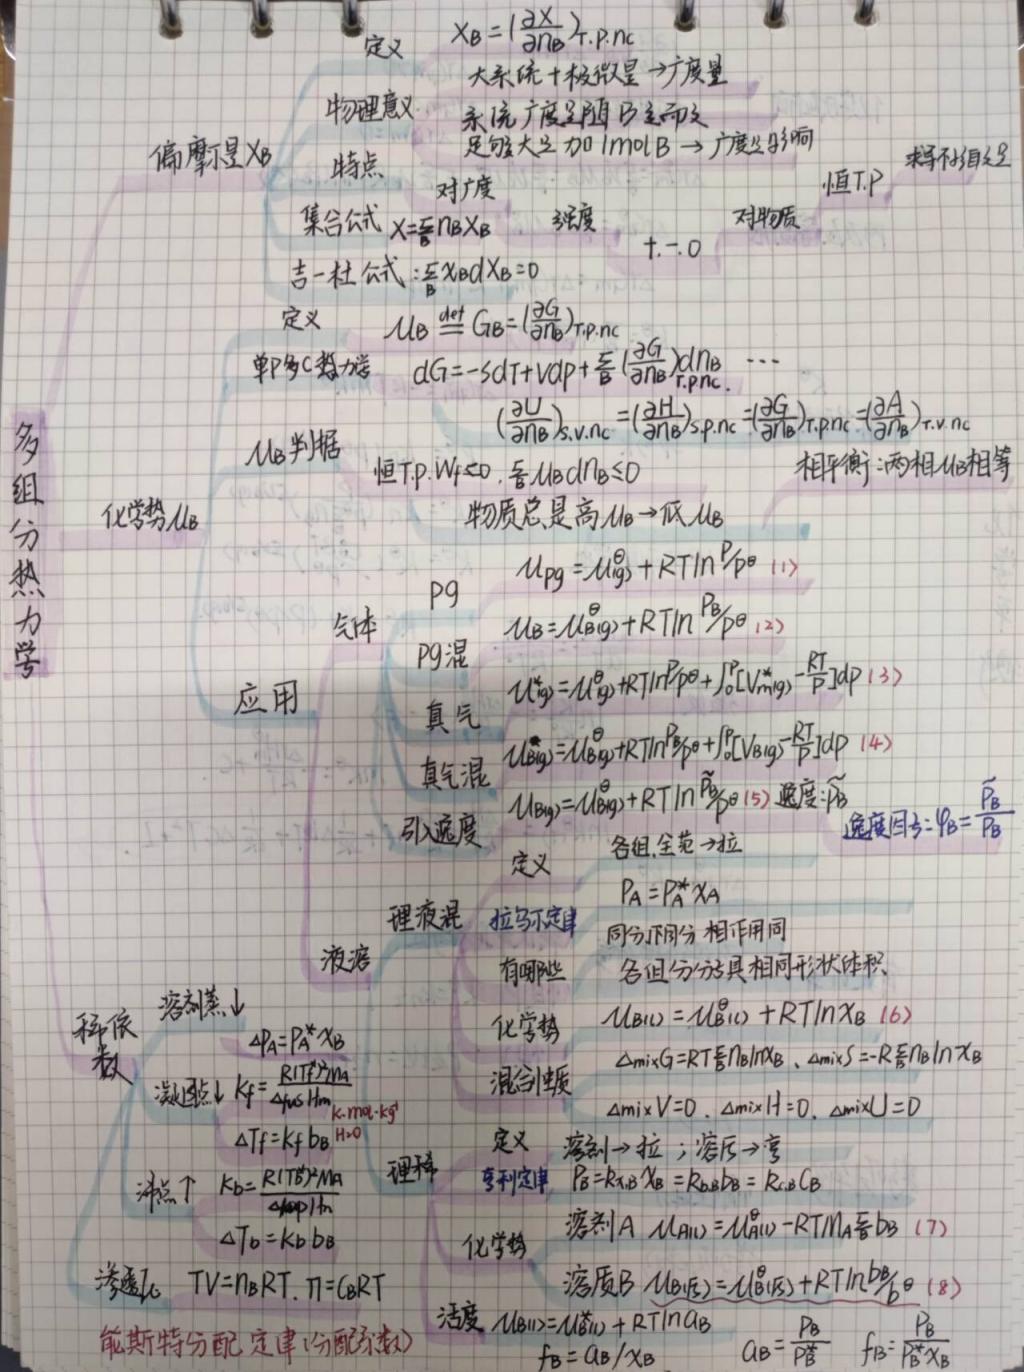 多组分热力学
偏摩尔量XB
定义 XB=(∂X/∂nB)T.P.nc
物理意义 大系统+极微量→广度量
系统广度量随B变而变
足够大量加1molB→广度量影响
特点 对广度 强度 对物质 恒T.P
+.-.0
集合公式 X=ΣB nBXB
吉-杜公式:ΣB xBdXB=0
化学势μB
定义 μB def GB=(∂G/∂nB)T.P.nc
单P多C热力学 dG=-SdT+Vdp+ΣB(∂G/∂nB)T.P.nc.dnB ···
(∂U/∂nB)S.V.nc=(∂H/∂nB)S.P.nc=(∂G/∂nB)T.P.nc=(∂A/∂nB)T.V.nc
μB判据 恒T.P.Wf≤0.ΣB μBdnB≤0 相平衡:两相μB相等
物质总是高μB→低μB
应用
气体
pg μpg=μ(g)θ+RTlnP/Pθ (1)
pg混 μB=μB(g)θ+RTlnPB/Pθ (2)
真气 μ*(g)=μ(g)θ+RTlnP/Pθ+∫0P[V*m(g)-RT/P]dp (3)
真气混 μB(g)=μB(g)θ+RTlnPB/Pθ+∫0P[VB(g)-RT/P]dp (4)
引入逸度 μB(g)=μB(g)θ+RTlnP̃B/Pθ (5) 逸度:P̃B
逸度因子:φB=P̃B/PB
液溶
理液混
定义 各组.全范→拉
拉乌尔定律 PA=PA*xA
有哪些 同分不同分 相作用同
各组分分子具相同形状体积
化学势 μB(l)=μB(l)θ+RTlnxB (6)
混合性质 ΔmixG=RTΣB nBlnxB、ΔmixS=-RΣB nBlnxB
ΔmixV=0.ΔmixH=0.ΔmixU=0
理稀
定义 溶剂→拉;溶质→亨
亨利定律 PB=kx.BxB=kb.BbB=kc.BCB
化学势 溶剂A μA(l)=μA(l)θ-RTMAΣB bB (7)
溶质B μB(质)=μB(质)θ+RTlnbB/bθ (8)
活度 μB(l)=μB(l)*+RTlnaB
fB=aB/xB aB=PB/PB* fB=PB/PB*xB
稀依数
溶剂蒸↓
ΔPA=PA*xB
凝固点↓ Kf=R(Tf*)²MA/ΔfusHm K·mol·kg⁻¹
ΔTf=KfbB H2O
沸点↑ Kb=R(Tb*)²MA/ΔvapHm
ΔTb=KbbB
渗透压 πV=nBRT.π=CBRT
能斯特分配定律(分配系数)